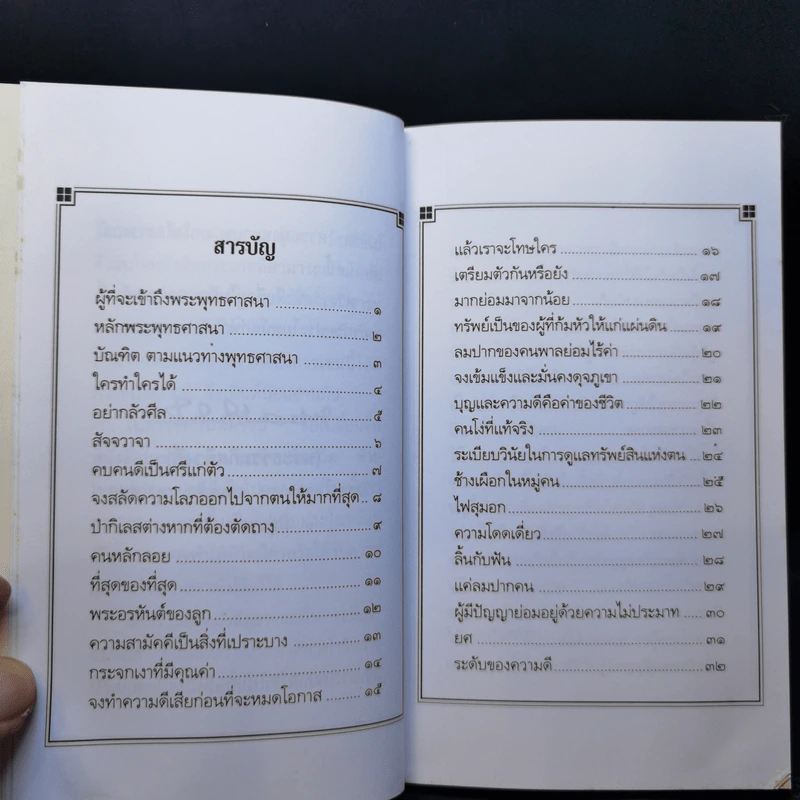 สารบัญ
ผู้ที่จะเข้าถึงพระพุทธศาสนา ๑
หลักพระพุทธศาสนา ๒
บัณฑิต ตามแนวทางพุทธศาสนา ๓
ใครทำใครได้ ๔
อย่ากลัวศีล ๕
สัจจวาจา ๖
คบคนดีเป็นศรีแก่ตัว ๗
จงสลัดความโลภออกไปจากตนให้มากที่สุด ๘
ป่ากิเลสต่างหากที่ต้องตัดถาง ๙
คนหลักลอย ๑๐
ที่สุดของที่สุด ๑๑
พระอรหันต์ของลูก ๑๒
ความสามัคคีเป็นสิ่งที่เปราะบาง ๑๓
กระจกเงาที่มีคุณค่า ๑๔
จงทำความดีเสียก่อนที่จะหมดโอกาส ๑๕
แล้วเราจะโทษใคร ๑๖
เตรียมตัวกันหรือยัง ๑๗
มากย่อมมาจากน้อย ๑๘
ทรัพย์เป็นของผู้ที่ก้มหัวให้แก่แผ่นดิน ๑๙
ลมปากของคนพาลย่อมไร้ค่า ๒๐
จงเข้มแข็งและมั่นคงดุจภูเขา ๒๑
บุญและความดีคือค่าของชีวิต ๒๒
คนโง่ที่แท้จริง ๒๓
ระเบียบวินัยในการดูแลทรัพย์สินแห่งตน ๒๔
ช้างเผือกในหมู่คน ๒๕
ไฟสุมอก ๒๖
ความโดดเดี่ยว ๒๗
ลิ้นกับฟัน ๒๘
แค่ลมปากคน ๒๙
ผู้มีปัญญาย่อมอยู่ด้วยความไม่ประมาท ๓๐
ยศ ๓๑
ระดับของความดี ๓๒